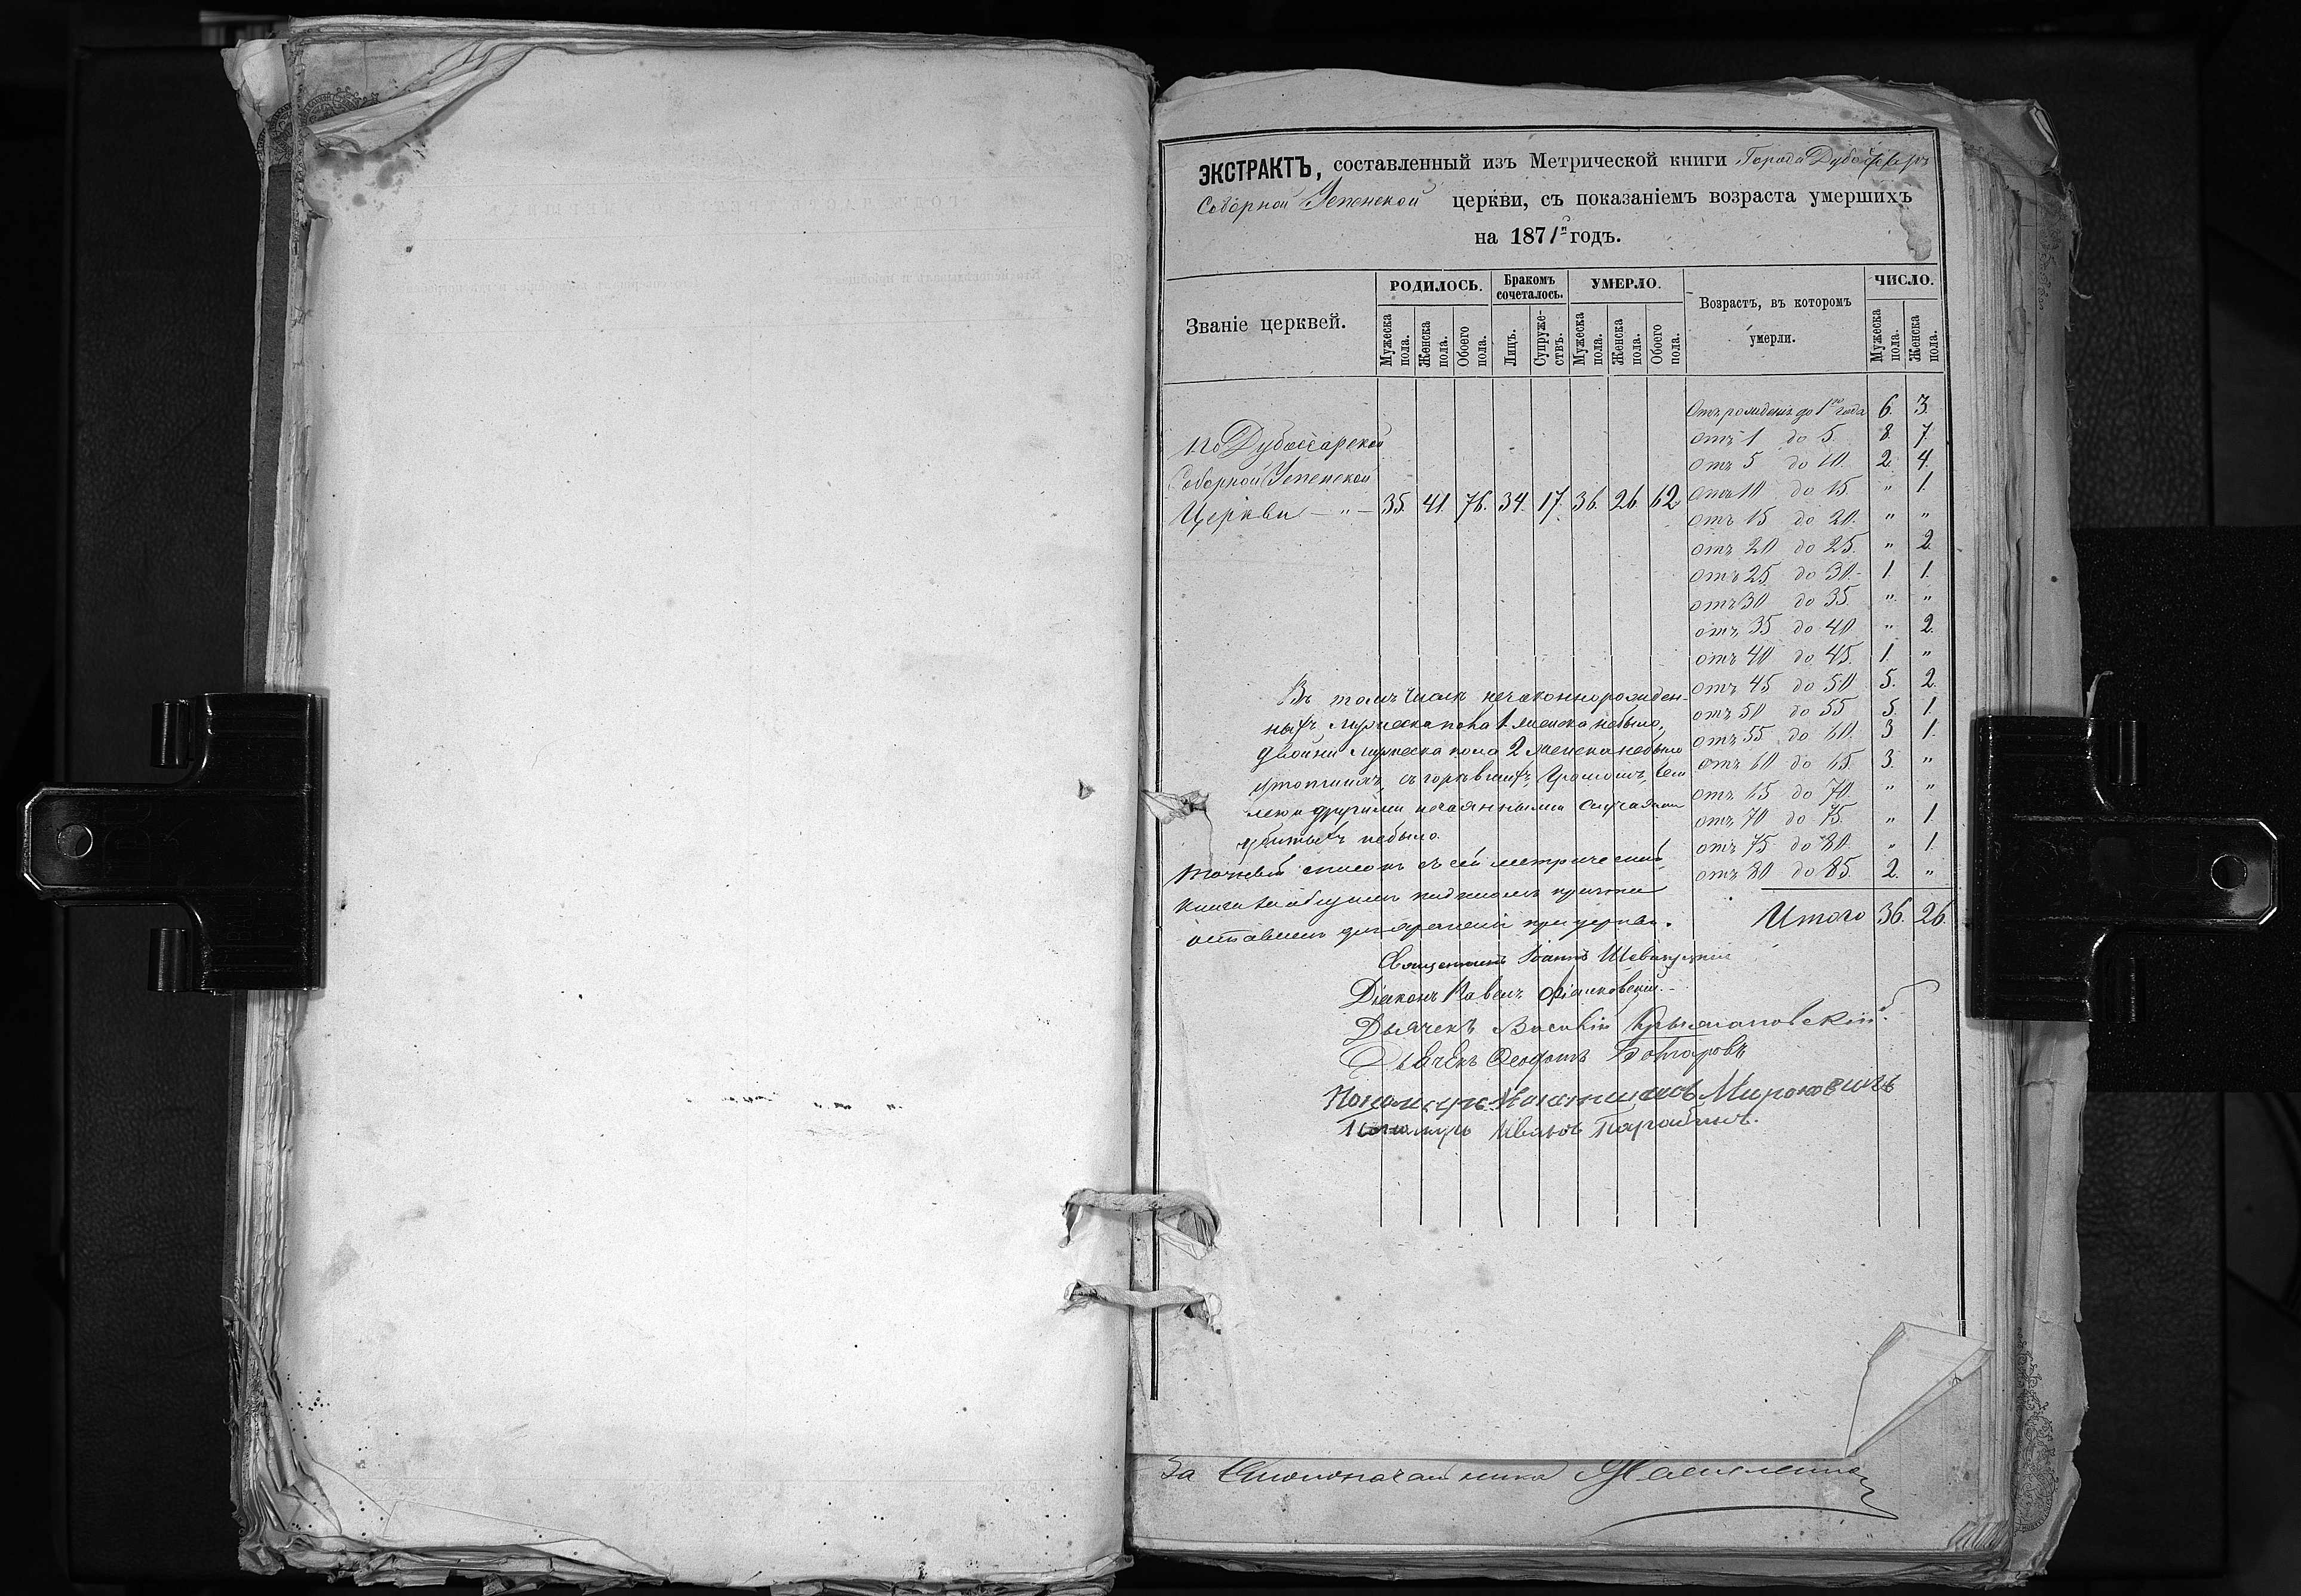 ЭКСТРАКТЪ, составленный изъ Метрической книги Города Дубоссаръ
Соборной Успенской церкви, съ показаніемъ возраста умершихъ
на 1871й годъ.
Званіе церквей.
РОДИЛОСЬ.
Бракомъ сочеталось.
УМЕРЛО.
Возрастъ, въ которомъ
умерли.
ЧИСЛО.
Мужеска пола.
Женска пола.
Обоего пола.
Лицъ.
Супруже-ствъ.
Мужеска пола.
Женска пола.
Обоего пола.
Мужеска пола.
Женска пола.
По Дубоссарской
Соборной Успенской
Церкви — „ — 35. 41. 76. 34. 17. 36. 26. 62
Отъ рожденія до 1го года 6. 3.
отъ 1 до 5. 8. 7.
отъ 5 до 10. 2. 4.
отъ 10 до 15. „ 1.
отъ 15 до 20. „ „
отъ 20 до 25. „ 2.
отъ 25 до 30. 1. 1.
отъ 30 до 35. „ „
отъ 35 до 40. „ 2.
отъ 40 до 45. 1. „
отъ 45 до 50 5. 2.
отъ 50 до 55 5. 1.
отъ 55 до 60. 3. 1.
отъ 60 до 65. 3. „
отъ 65 до 70. „ „
отъ 70 до 75. „ 1.
отъ 75 до 80. „ 1.
отъ 80 до 85. 2. „
Итого 36. 26.
Въ томъ числѣ незаконнорожден-
ныхъ мужеска пола 1. женска небыло,
двойни мужеска пола 2 женска небыло
утопшихъ, сгорѣвшихъ, громомъ,
и другими нечаянными случаями
убитыхъ небыло.
Точный списокъ съ сей метрической
книги за общимъ подписомъ причта
оставленъ для храненія при церкви.
Священникъ Іоаннъ
Діаконъ Павелъ
Дьячекъ Василій Крыжановскій.
Дьячекъ Феодотъ Бонтаровъ
Пономарь Мироновичъ
Пономарь Иванъ
За Столоначальника